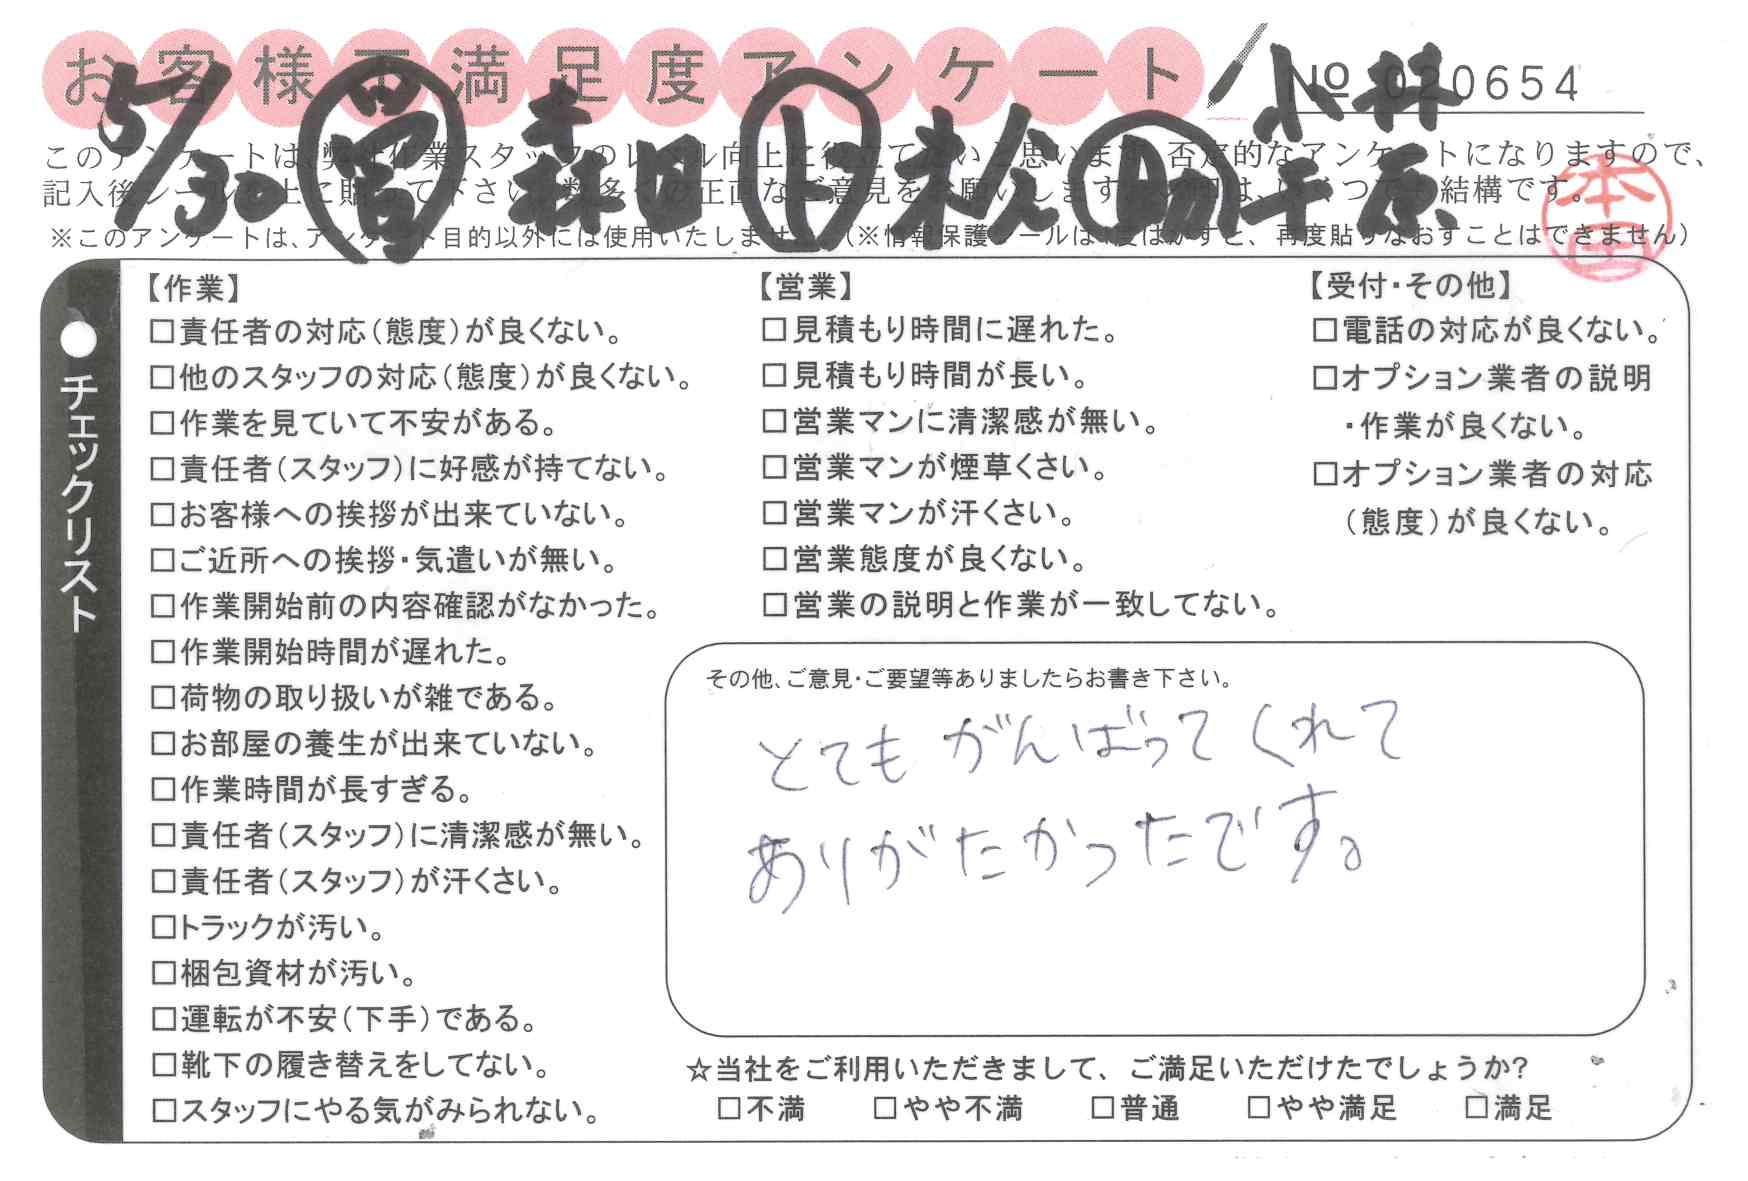 お客様の満足度アンケート
No 020654
5/30 営 森田 ト 松 助 小林
平原
本田
このアンケートは、弊社作業スタッフのレベル向上に役立てたいと思います。否定的なアンケートになりますので、
記入後シールを上に貼って下さい。数多くの正直なご意見をお願いします。
※このアンケートは、アンケート目的以外には使用いたしません。(※情報保護シールは1度はがすと、再度貼りなおすことはできません)
チェックリスト
【作業】
□責任者の対応(態度)が良くない。
□他のスタッフの対応(態度)が良くない。
□作業を見ていて不安がある。
□責任者(スタッフ)に好感が持てない。
□お客様への挨拶が出来ていない。
□ご近所への挨拶・気遣いが無い。
□作業開始前の内容確認がなかった。
□作業開始時間が遅れた。
□荷物の取り扱いが雑である。
□お部屋の養生が出来ていない。
□作業時間が長すぎる。
□責任者(スタッフ)に清潔感が無い。
□責任者(スタッフ)が汗くさい。
□トラックが汚い。
□梱包資材が汚い。
□運転が不安(下手)である。
□靴下の履き替えをしてない。
□スタッフにやる気がみられない。
【営業】
□見積もり時間に遅れた。
□見積もり時間が長い。
□営業マンに清潔感が無い。
□営業マンが煙草くさい。
□営業マンが汗くさい。
□営業態度が良くない。
□営業の説明と作業が一致してない。
【受付・その他】
□電話の対応が良くない。
□オプション業者の説明
・作業が良くない。
□オプション業者の対応
(態度)が良くない。
その他、ご意見・ご要望等ありましたらお書き下さい。
とてもがんばってくれて
ありがたかったです。
☆当社をご利用いただきまして、ご満足いただけたでしょうか?
□不満 □やや不満 □普通 □やや満足 □満足